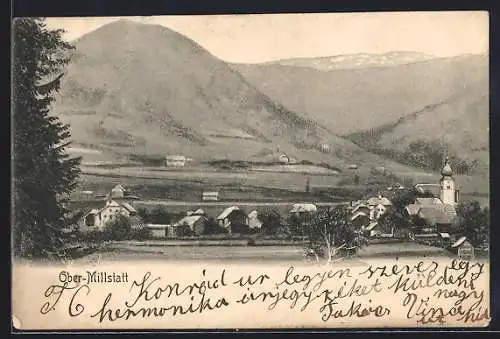 Ober-Millstatt
T C Konrád ur legyen szíves egy
hermonika árjegyzéket küldeni
Takács
nagy